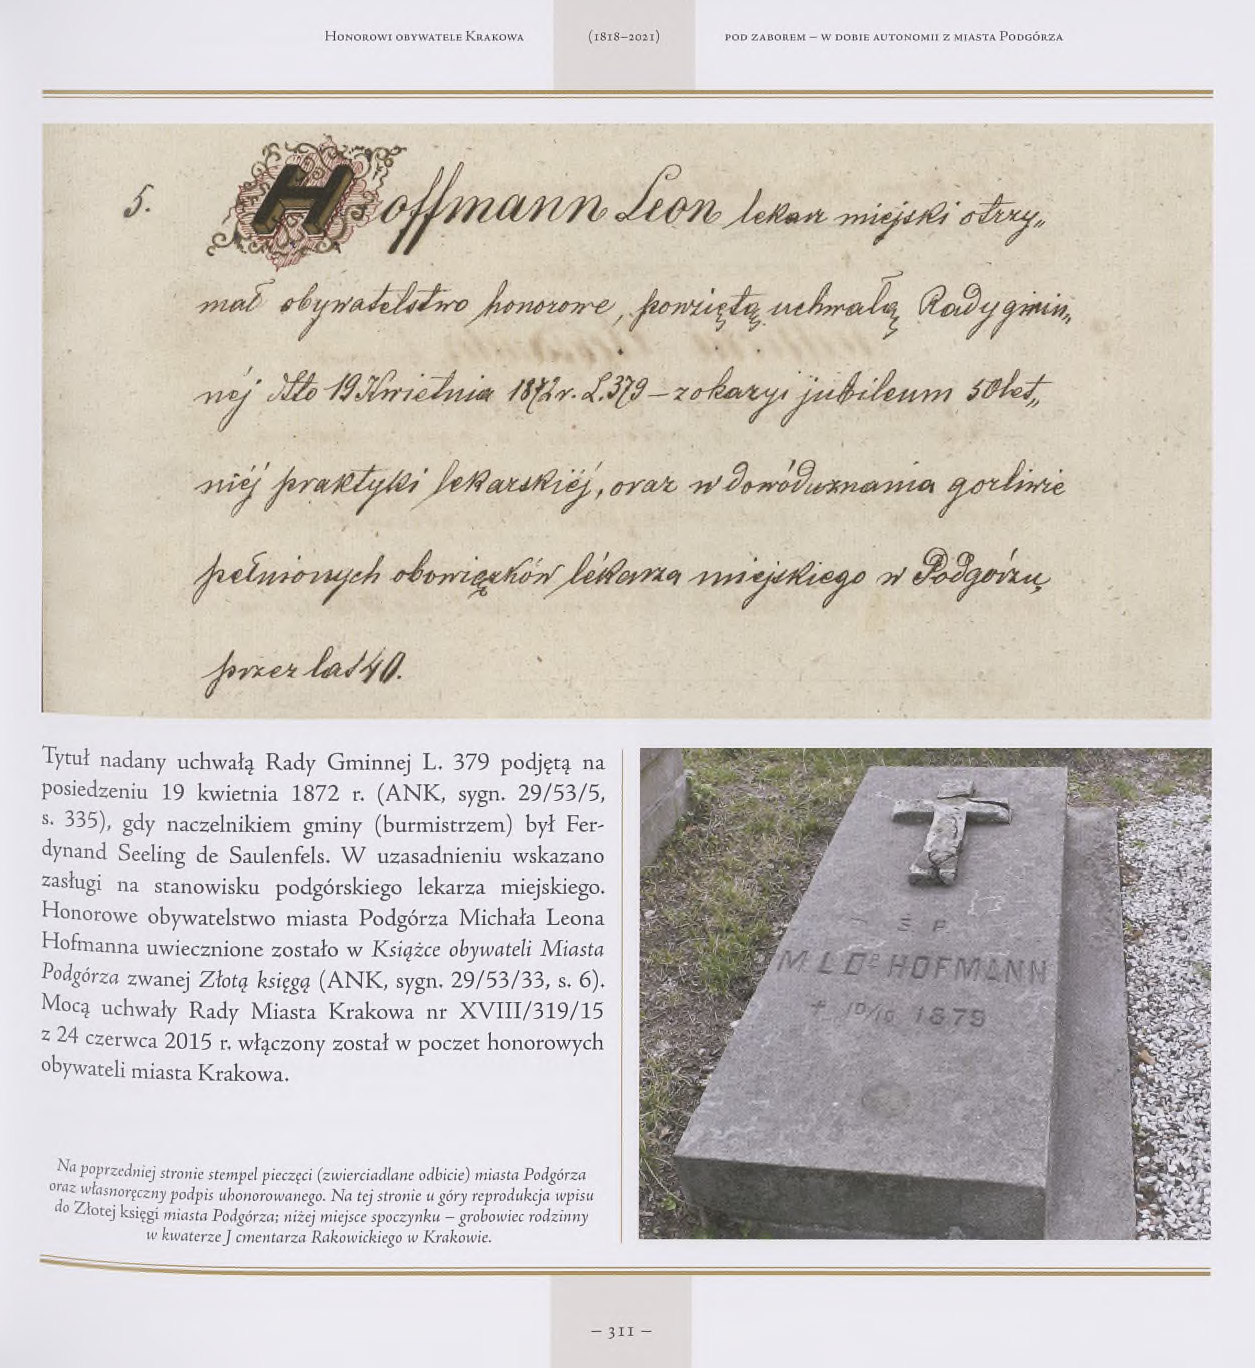 Honorowi obywatele Krakowa (1818–2021) pod zaborem – w dobie autonomii z miasta Podgórza
5. Hoffmann Leon lekarz miejski otrzy„
mał obywatelstwo honorowe, powziętą uchwałą Rady gmin„
néj dto 19 Kwietnia 1872 r. L. 379 – z okazyi jubileum 50 let„
niéj praktyki lekarskiéj, oraz w dowód uznania gorliwie
pełnionych obowiązków lékarza miejskiego w Podgórzu,
przez lat 40.
Tytuł nadany uchwałą Rady Gminnej L. 379 podjętą na
posiedzeniu 19 kwietnia 1872 r. (ANK, sygn. 29/53/5,
s. 335), gdy naczelnikiem gminy (burmistrzem) był Fer-
dynand Seeling de Saulenfels. W uzasadnieniu wskazano
zasługi na stanowisku podgórskiego lekarza miejskiego.
Honorowe obywatelstwo miasta Podgórza Michała Leona
Hofmanna uwiecznione zostało w Książce obywateli Miasta
Podgórza zwanej Złotą księgą (ANK, sygn. 29/53/33, s. 6).
Mocą uchwały Rady Miasta Krakowa nr XVIII/319/15
z 24 czerwca 2015 r. włączony został w poczet honorowych
obywateli miasta Krakowa.
Na poprzedniej stronie stempel pieczęci (zwierciadlane odbicie) miasta Podgórza
oraz własnoręczny podpis uhonorowanego. Na tej stronie u góry reprodukcja wpisu
do Złotej księgi miasta Podgórza; niżej miejsce spoczynku – grobowiec rodzinny
w kwaterze J cmentarza Rakowickiego w Krakowie.
Ś P
M L DR HOFMANN
† 10/10 1879
– 311 –